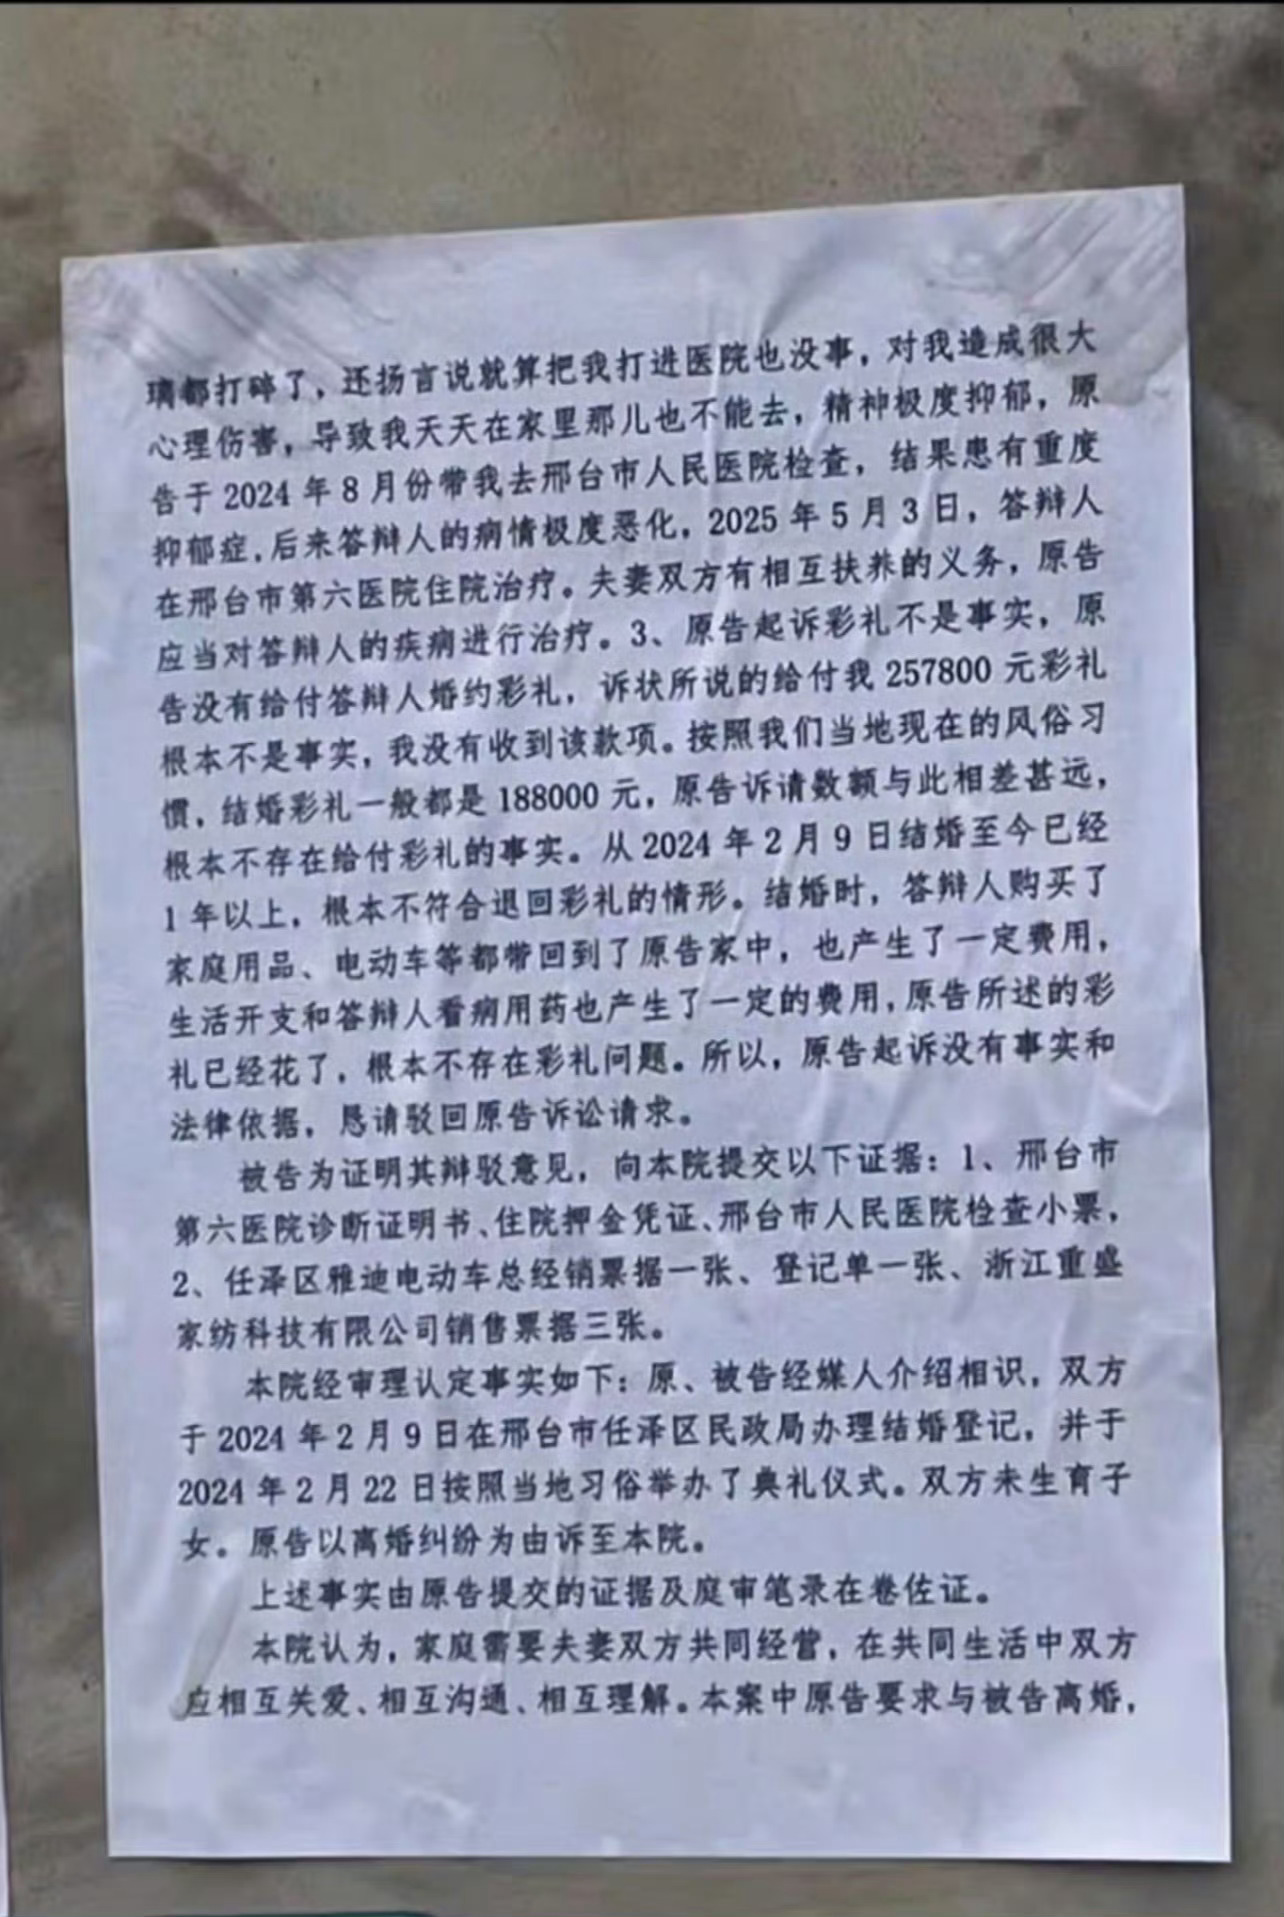 璃都打碎了，还扬言说就算把我打进医院也没事，对我造成很大
心理伤害，导致我天天在家里那儿也不能去，精神极度抑郁，原
告于 2024 年 8 月份带我去邢台市人民医院检查，结果患有重度
抑郁症，后来答辩人的病情极度恶化，2025 年 5 月 3 日，答辩人
在邢台市第六医院住院治疗。夫妻双方有相互扶养的义务，原告
应当对答辩人的疾病进行治疗。3、原告起诉彩礼不是事实，原
告没有给付答辩人婚约彩礼，诉状所说的给付我 257800 元彩礼
根本不是事实，我没有收到该款项。按照我们当地现在的风俗习
惯，结婚彩礼一般都是 188000 元，原告诉请数额与此相差甚远，
根本不存在给付彩礼的事实。从 2024 年 2 月 9 日结婚至今已经
1 年以上，根本不符合退回彩礼的情形。结婚时，答辩人购买了
家庭用品、电动车等都带回到了原告家中，也产生了一定费用，
生活开支和答辩人看病用药也产生了一定的费用，原告所述的彩
礼已经花了，根本不存在彩礼问题。所以，原告起诉没有事实和
法律依据，恳请驳回原告诉讼请求。
被告为证明其辩驳意见，向本院提交以下证据：1、邢台市
第六医院诊断证明书、住院押金凭证、邢台市人民医院检查小票，
2、任泽区雅迪电动车总经销票据一张、登记单一张、浙江重盛
家纺科技有限公司销售票据三张。
本院经审理认定事实如下：原、被告经媒人介绍相识，双方
于 2024 年 2 月 9 日在邢台市任泽区民政局办理结婚登记，并于
2024 年 2 月 22 日按照当地习俗举办了典礼仪式。双方未生育子
女。原告以离婚纠纷为由诉至本院。
上述事实由原告提交的证据及庭审笔录在卷佐证。
本院认为，家庭需要夫妻双方共同经营，在共同生活中双方
应相互关爱、相互沟通、相互理解。本案中原告要求与被告离婚，